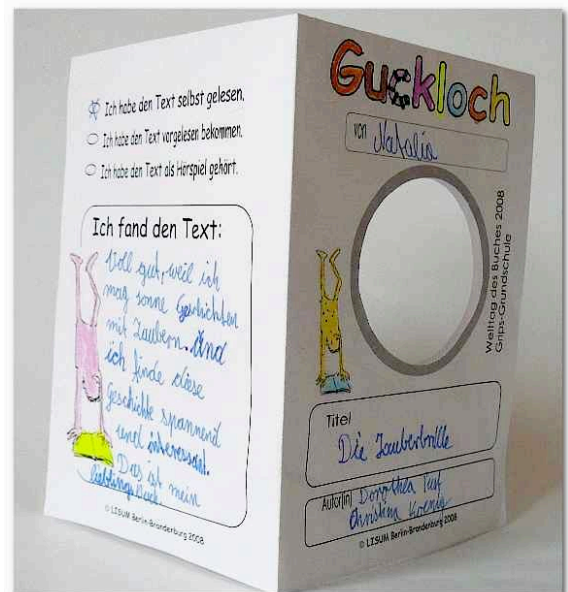 Ich habe den Text selbst gelesen.
Ich habe den Text vorgelesen bekommen.
Ich habe den Text als Hörspiel gehört.
Ich fand den Text:
Voll gut, weil ich
mag sonne Geschichten
mit Zaubern. Und
ich finde diese
geschichte spannend
und interessant.
Das ist mein
lieblings Buch
© LISUM Berlin-Brandenburg 2008
Guckloch
von Natalia
Welttag des Buches 2008
Grips-Grundschule
Titel
Die Zauberbrille
Autor(in) Dorothea
Christina Koenig
© LISUM Berlin-Brandenburg 2008